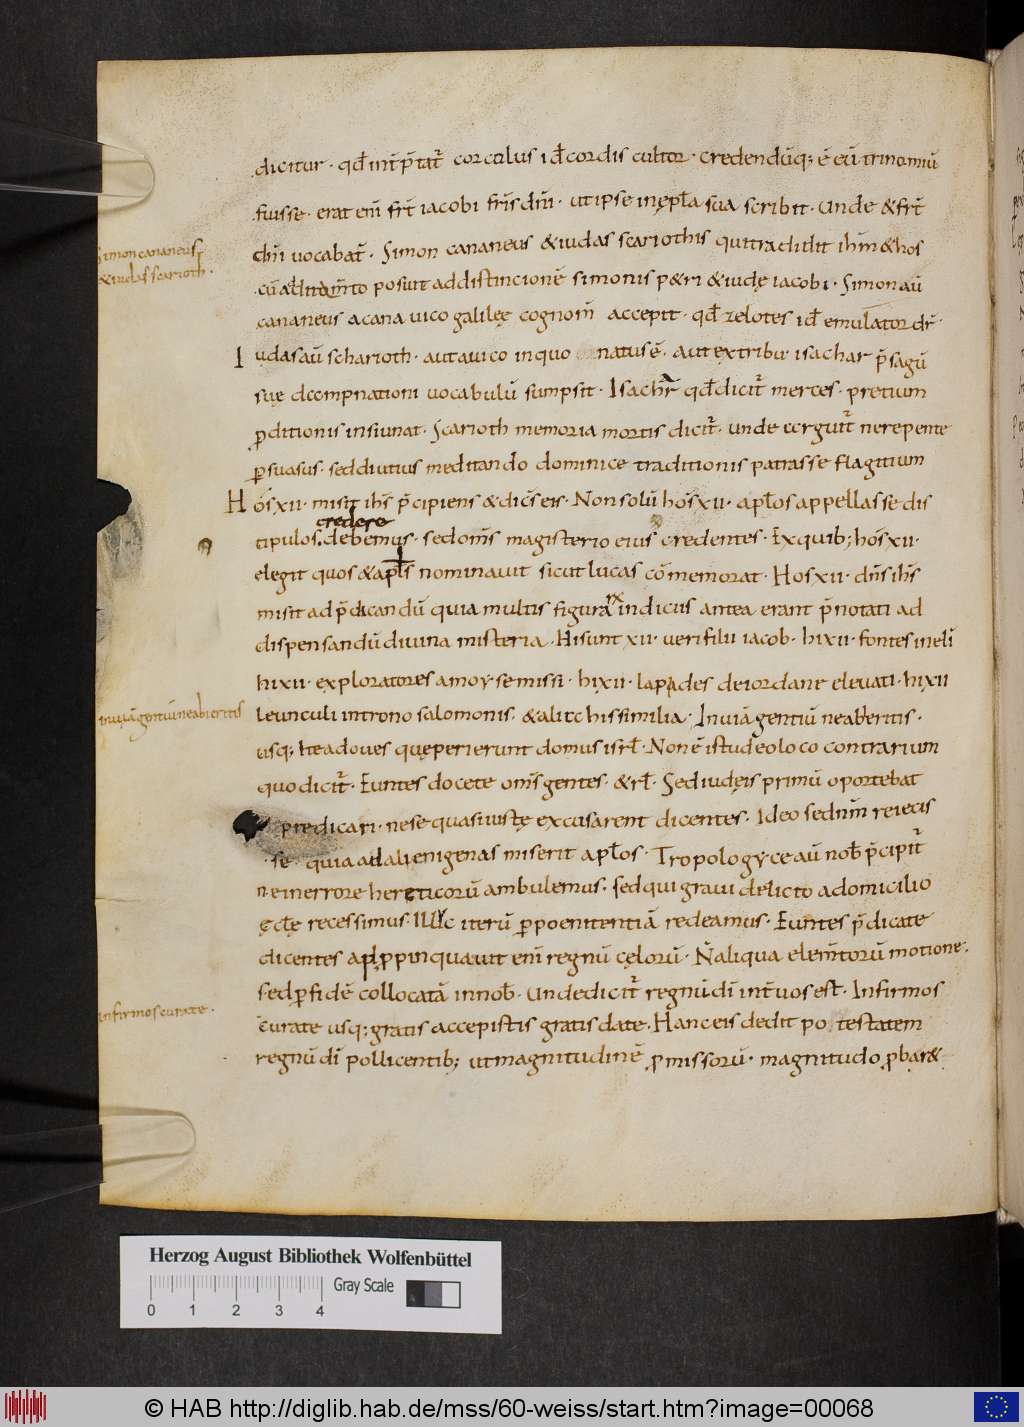 dicitur · qd̄ int̄p̄tat̄ corculus id̄ cordis cultor · credendūq; ē eū trinomiū
fuisse · erat eni̅ frt̄ iacobi fr̄is dn̄i · ut ipse in ępl̄a sua scribit · unde & frt̄
dn̄i vocabat̄ · Simon cananeus & iudas scariothis qui tradidit ih̄m & hos
Simon cananeus
& iudas scarioth ·
cū additam̄to posuit ad distincionē simonis p&ri & iudę iacobi · Simon aū
cananeus a cana uico galilęę cognom̄ accepit · qd̄ zelotes id̄ emulator dr̄ ·
Iudas aū scharioth · aut a uico in quo natus ē · aut ex tribu isachar p̄sagū
suę dampnationi uocabulū sumpsit · Isachr̄ qd̄ dicit̄ merces · pretium
p̱ditionis insinuat · Scarioth memoria mortis dicit̄ · unde arguit̄ ne repente
p̱suasus · sed diutius meditando dominice traditionis patrasse flagitium
Hos xii · misit ih̄s p̄cipiens & dic̄s eis · Non solū hos xii · apl̄os appellasse dis
credere
tipulos debemus · sed om̄s magisterio eius credentes · Ex quib; hos xii ·
elegit quos & apl̄s nominauit sicut lucas cōmemorat · Hos xii · dn̄s ih̄s
misit ad p̄dicandū quia multis figurarx̄ indiciis antea erant p̄notati ad
dispensandū diuina misteria · Hi sunt xii · ueri filii iacob · hi xii · fontes in eli
hi xii · exploratores a moyse missi · hi xii · lapides de iordane eleuati · hi xii
leunculi in trono salomonis · & alia his similia · In uiā gentiū ne abieritis ·
in uiā gentiū ne abieritis
usq; ite ad oues quę perierunt domus isrl̄ · Non ē istud eo loco contrarium
quo dicit̄ · Euntes docete om̄s gentes · & rl̄ · Sed iudęis primū oportebat
predicari · ne se quasi iustę excusarent dicentes · Ideo se dn̄m reiecis
se · quia ad alienigenas miserit apl̄os · Tropologyce aū nob̄ p̄cipit̄
ne in errore hereticorū ambulemus · sed qui graui delicto a domicilio
ęcl̄ę recessimus · illuc iterū p̱ poenitentiā redeamus · Euntes p̄dicate
dicentes app̱pinquauit eni̅ regnū cęlorū · N̄ aliqua elem̄torū motione ·
sed p̱ fidē collocatā in nob̄ · Unde dicit̄ regnū dī int̄ uos est · Infirmos
infirmos curate ·
curate usq; gratis accepistis gratis date · Hanc eis dedit potestatem
regnū dī pollicentib; ut magnitudinē p̱missorū · magnitudo p̱bar&
Herzog August Bibliothek Wolfenbüttel
Gray Scale
0 1 2 3 4
© HAB http://diglib.hab.de/mss/60-weiss/start.htm?image=00068